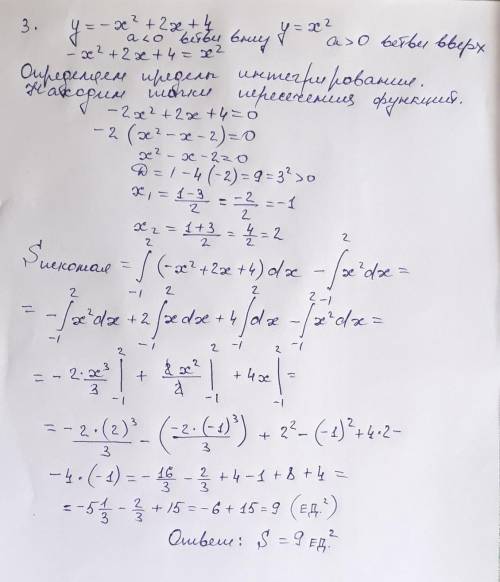 3. y = -x² + 2x + 4 y = x²
a<0 ветви вниз a>0 ветви вверх
-x² + 2x + 4 = x²
Определяем пределы интегрирования.
Находим точки пересечения функций.
-2x² + 2x + 4 = 0
-2 (x² - x - 2) = 0
x² - x - 2 = 0
D = 1 - 4(-2) = 9 = 3² > 0
x₁ = (1-3)/2 = -2/2 = -1
x₂ = (1+3)/2 = 4/2 = 2
S искомая = ∫₋₁² (-x² + 2x + 4) dx - ∫₋₁² x² dx =
= -∫₋₁² x² dx + 2∫₋₁² x dx + 4∫₋₁² dx - ∫₋₁² x² dx =
= - 2·x³/3 |₋₁² + 2x²/2 |₋₁² + 4x |₋₁² =
= - 2·(2)³/3 - (-2·(-1)³/3) + 2² - (-1)² + 4·2 -
- 4·(-1) = - 16/3 - 2/3 + 4 - 1 + 8 + 4 =
= -5 1/3 - 2/3 + 15 = -6 + 15 = 9 (ЕД.²)
Ответ: S = 9 ЕД.²